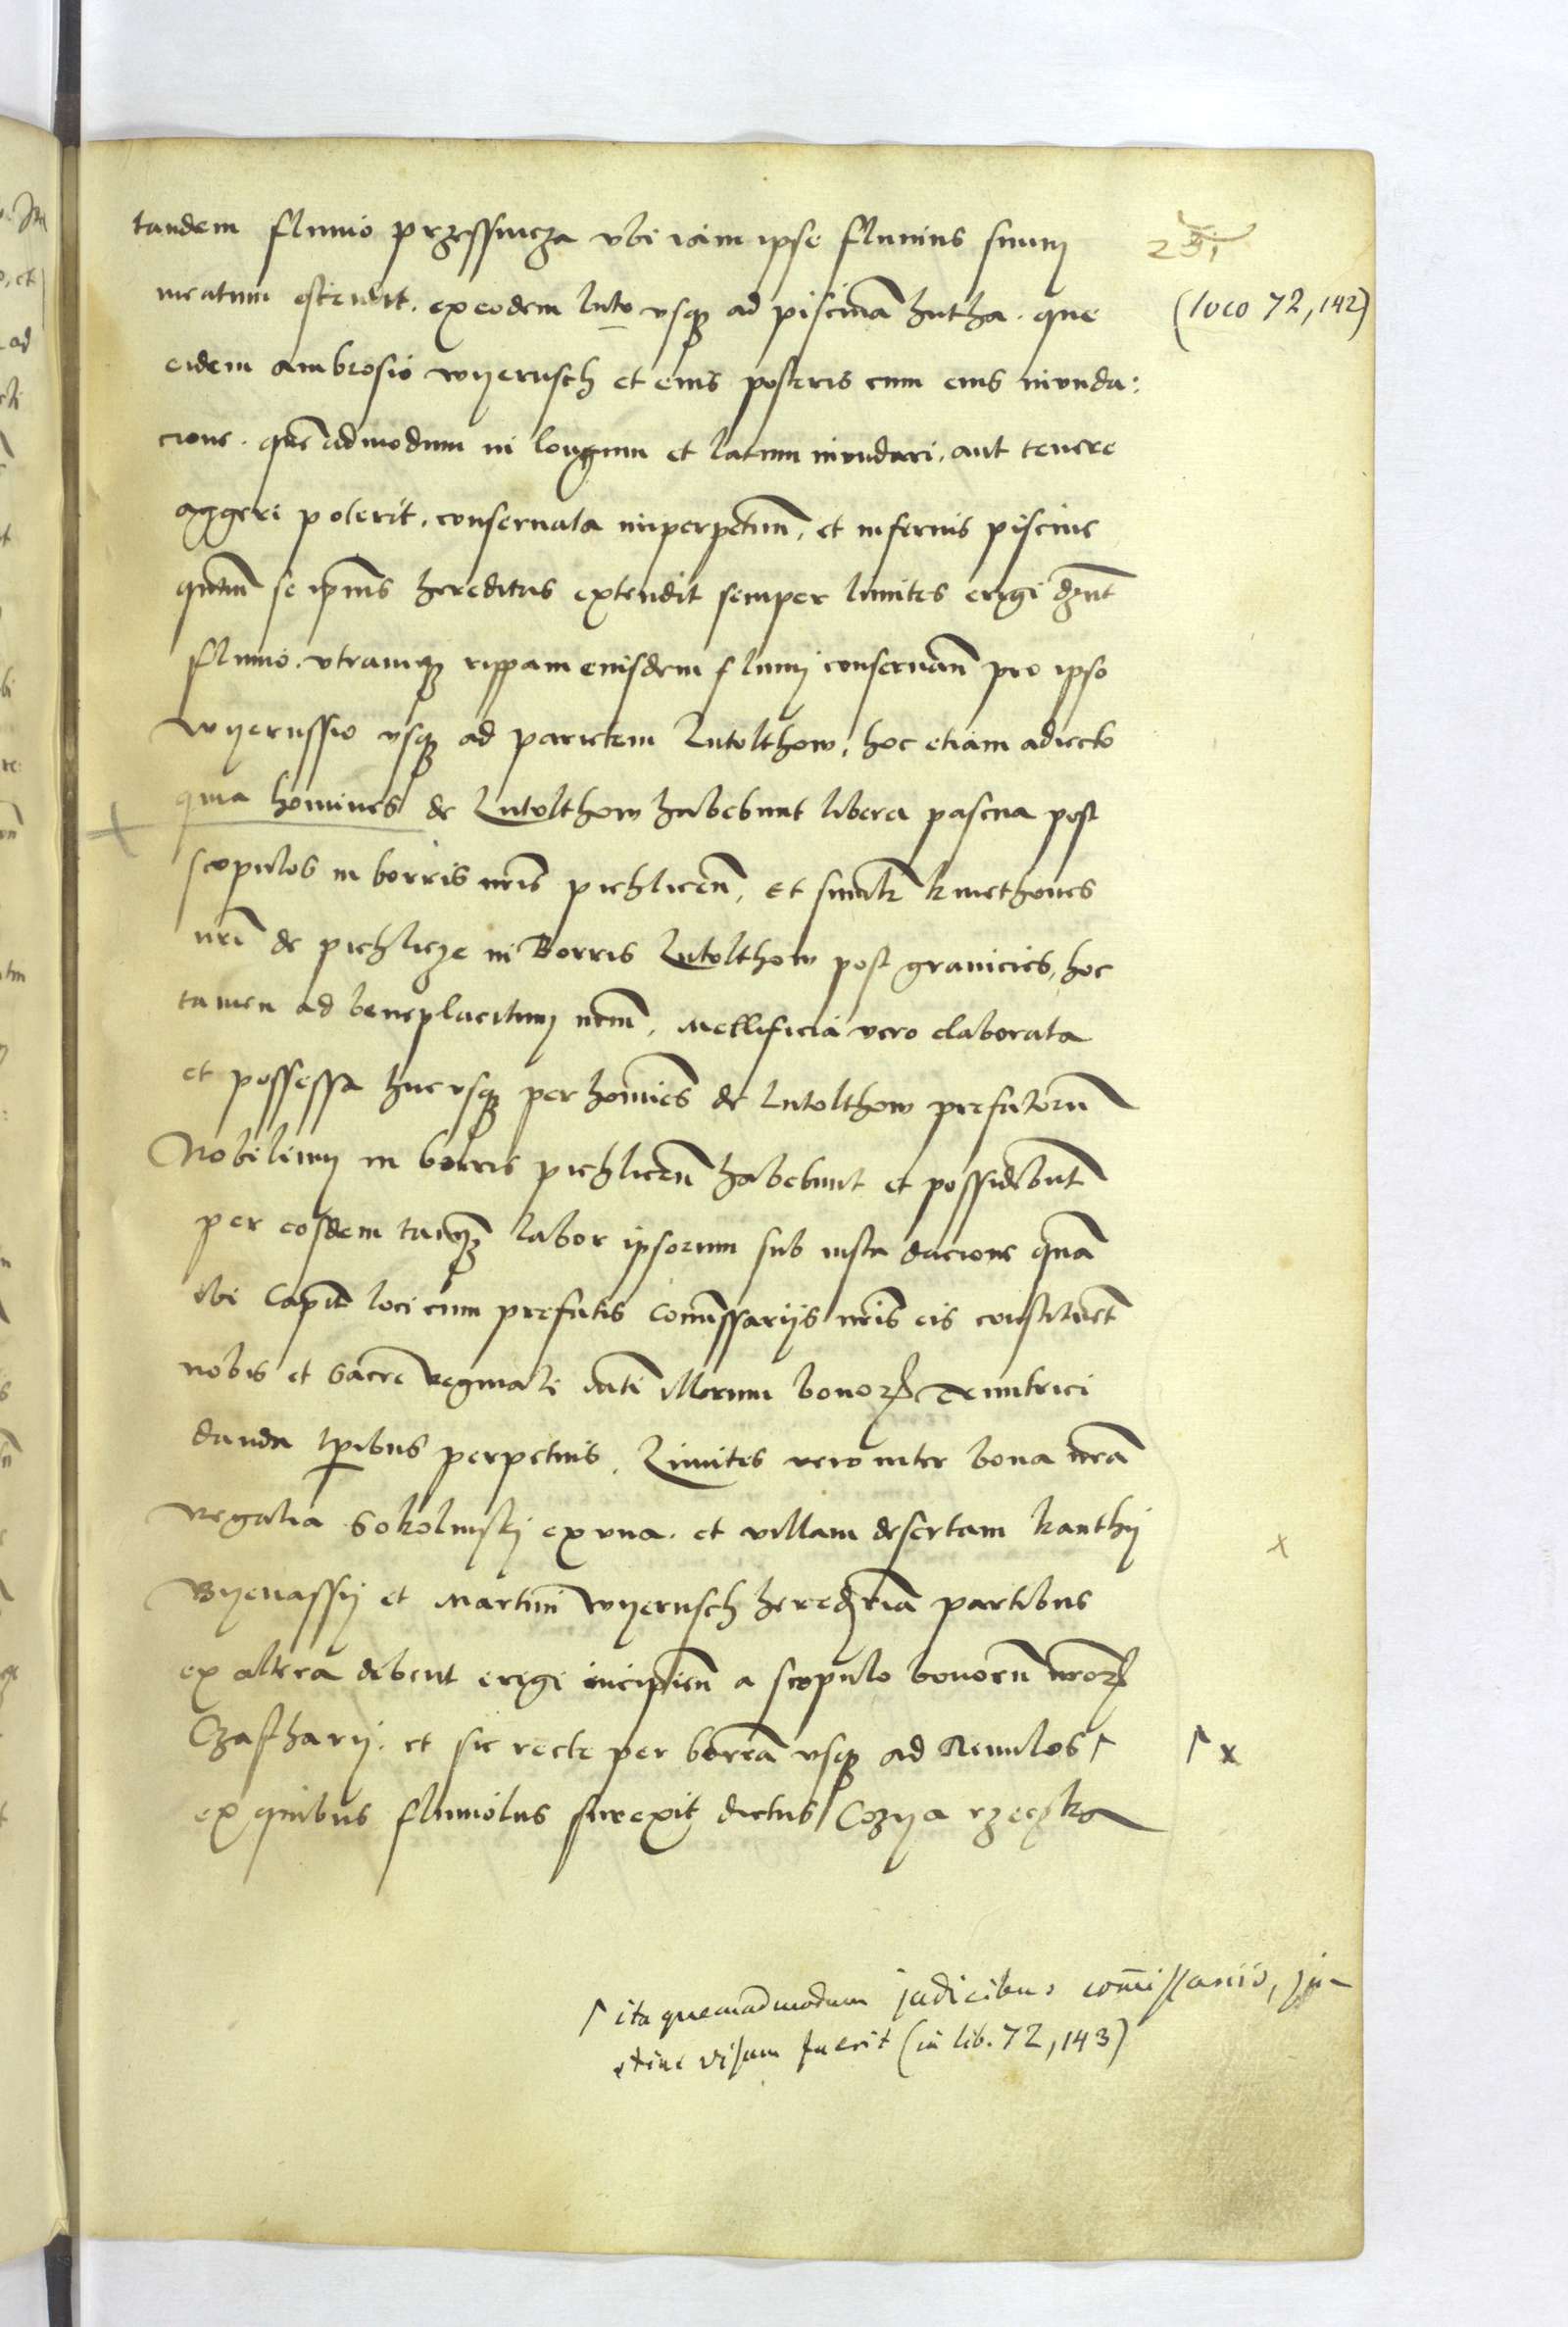 tandem fluuio przessiucza vbi iam ipse fluuius suum
231
meatum ostendit. ex eodem luto vsqʒ ad piscinā hutha. que
(loco 72, 142)
eidem ambrosio wyerusch et eius posteris cum eius inunda:
cione. quēadmodum in longum et latum inundari. aut tenere
aggeri poterit. conseruata inperpetuū, et inferius piscine
quātū se ipīus hereditas extendit semper limites erigi dʒnt
fluuio. vtramqʒ rippam eiusdem fluuij conseruān pro ipso
wyerussio vsqʒ ad parietem Lutolthow, hoc etiam adiecto
quia homines de Lutolthow habebunt libera pascua post
scopulos in borris nrīs pichlicēn, et simīlr kmethones
nrī de pichlicze in Borris Lutolthow post granicies, hoc
tamen ad beneplacitum nrm̄, Mellificia vero elaborata
et possessa hucvsqʒ per homīes de Lutolthow prefatorū
Nobilium in borris pichlicēn habebunt et possidebūt
per eosdem tanqʒ labor ipsorum sub iusta dacione quā
ibi Capit̄ loci cum prefatis Comissarijs nrīs eis constituet
nobis et sacre reginali mti illorum bonorʒ
danda tpībus perpetuis. Limites vero inter bona nrā
regalia Sokolnistij ex vna. et villam desertam kanthij
x
Byenassij et Martini wyerusch heredriā partibus
ex altera debent erigi incipien̄ a scopulo bonorū nrorʒ
Czastharij. et sic recte per borrā vsqʒ ad Riuulos ſ
ſ x
ex quibus fluuiolus surexit dictus Cozya rzeczka
ſ ita quemadmodum judicibus com̄issariis, ju-
stius visum fuerit (in lib. 72, 143)